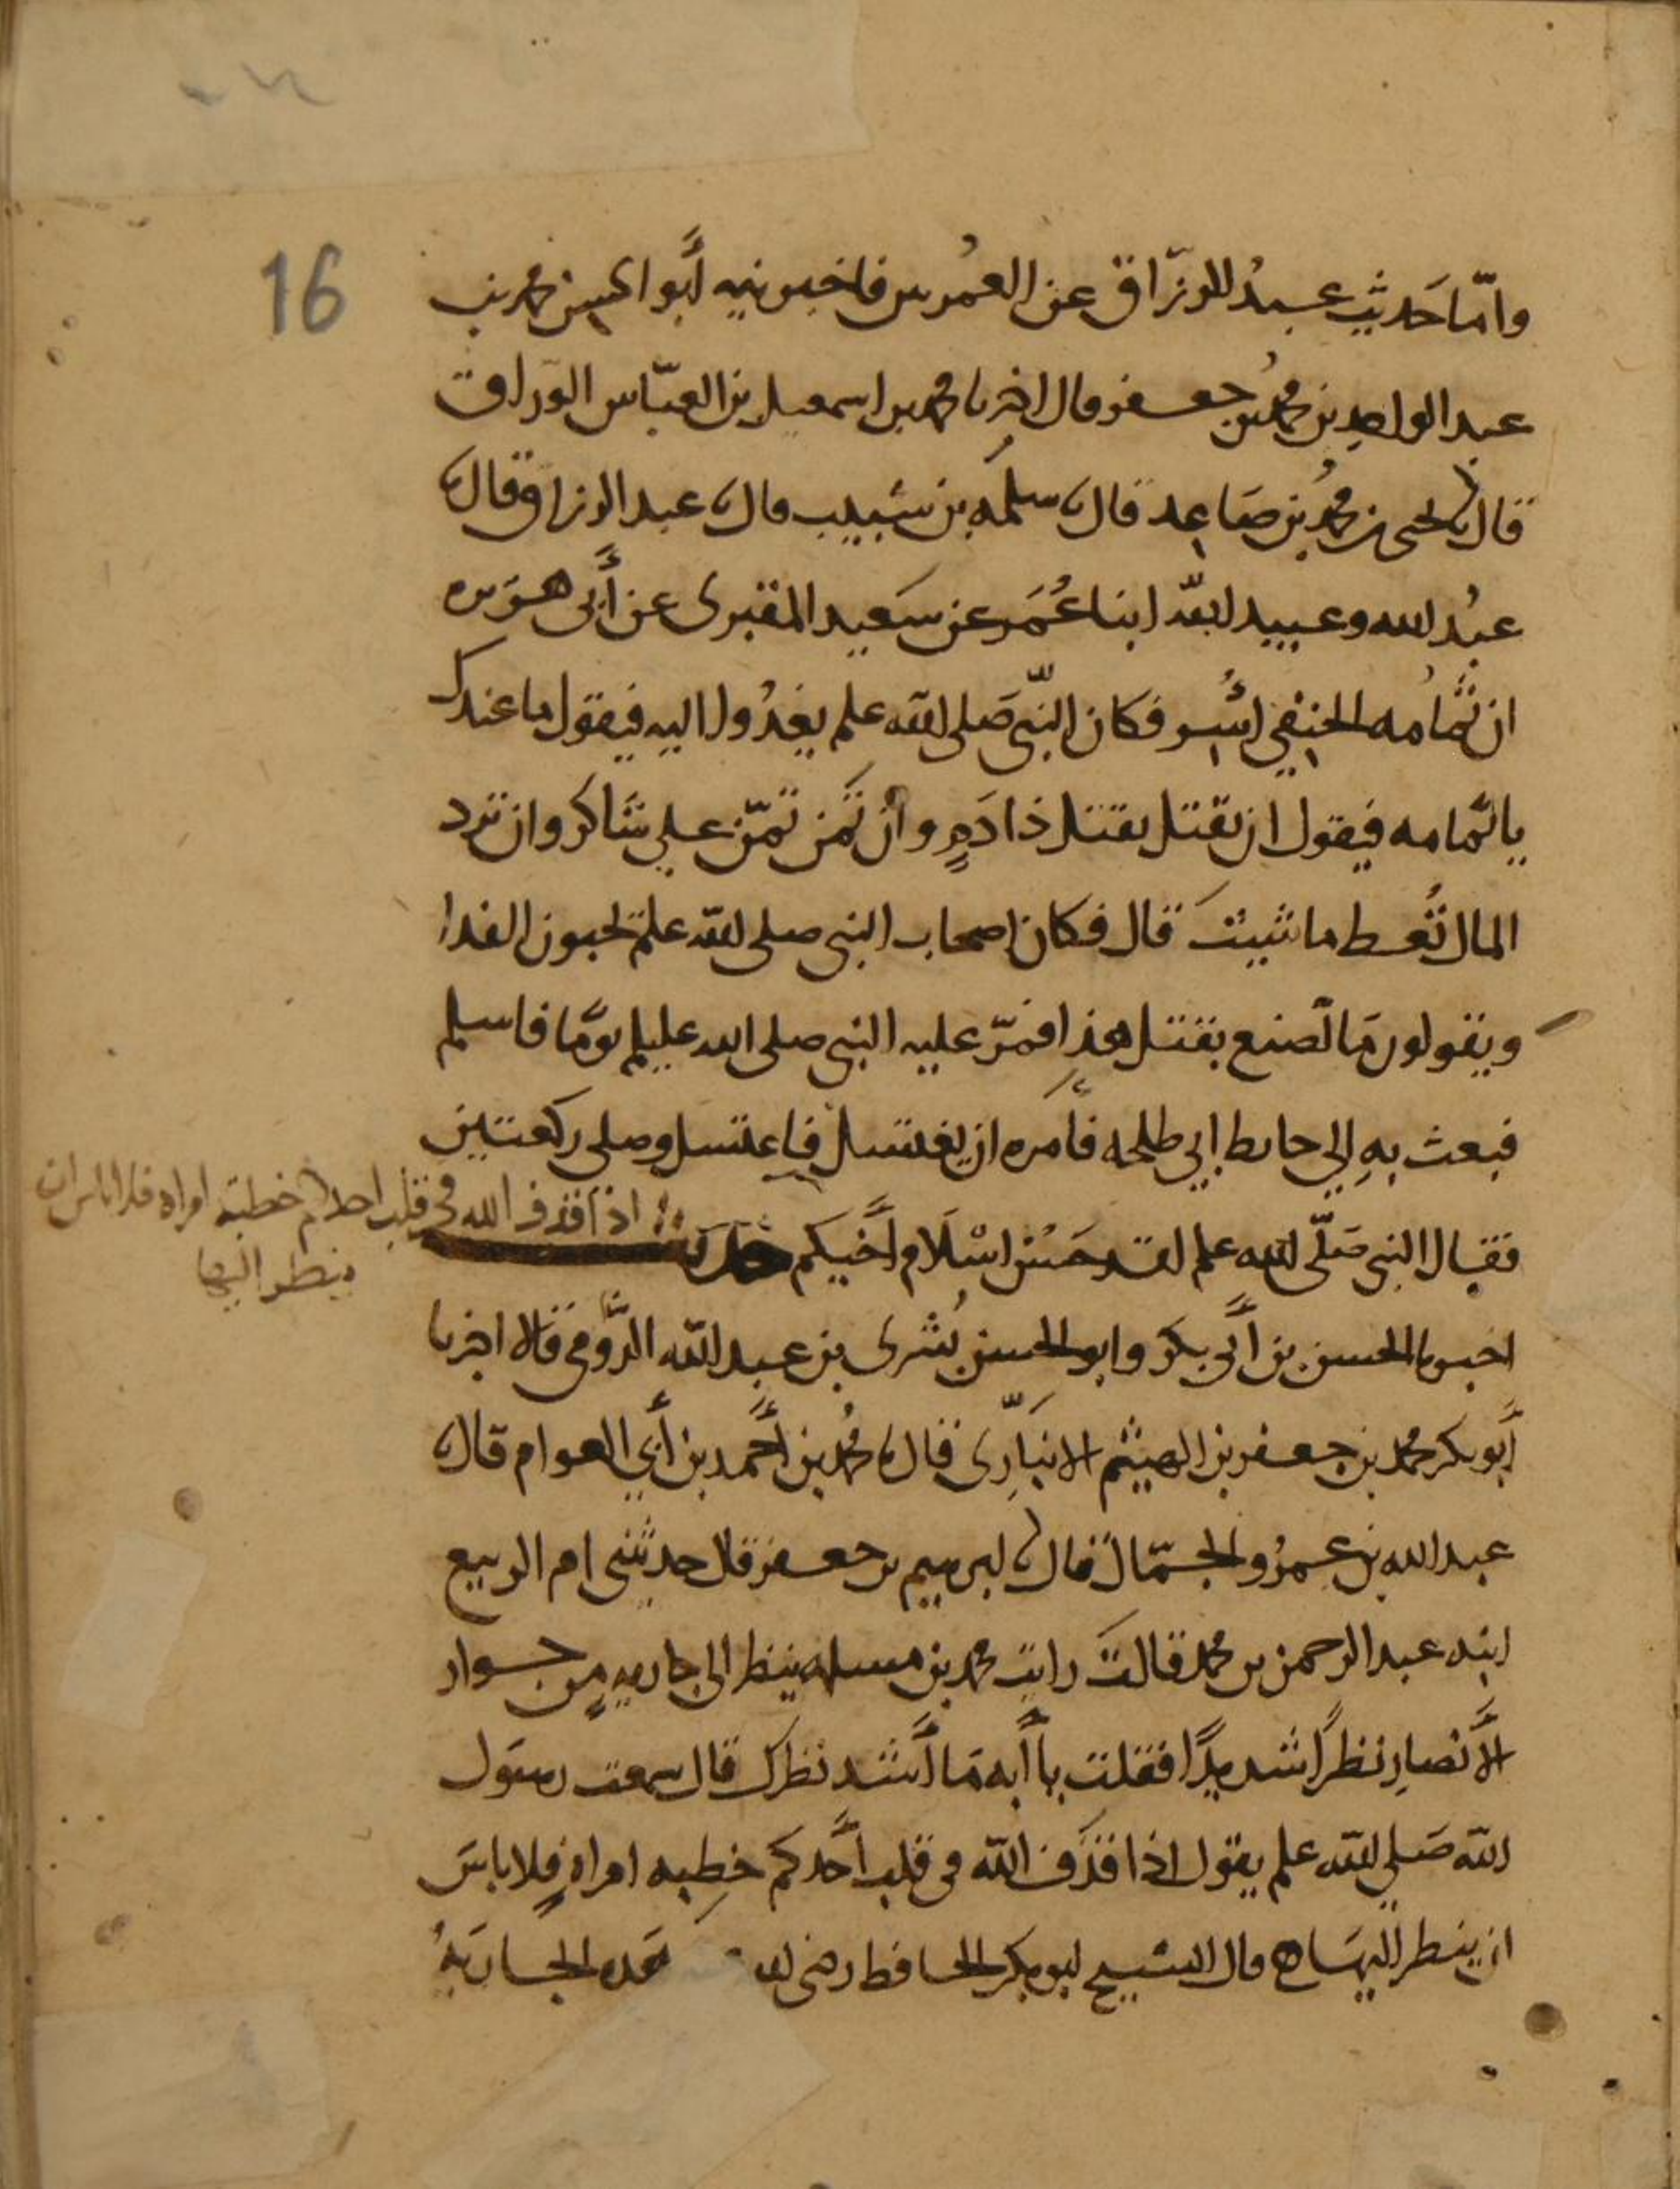 16
وامّا حَديث عبدُ الرزّاق عن العمُرىين فاخبرنيه أبو الحسن محمد بن
عبد الواحد بن محمد بن جعفر قال اخبرنا محمد بن اسمعيل بن العبّاس الوراق
قال نا يحيى بن محمد بن صَاعِد قال نا سلمه بن شبيب قال نا عبد الرزاق قال نا
عبدُ الله وعبيد الله ابنا عُمَر عن سَعيد المقبرى عن أبى هريره
ان ثُمَامه الحنفي اُسِر فكان النّبي صَلى الله علم يغدُوا اليه فيقول ما عندك
يا ثمامه فيقول ان تقتل تقتل ذا دَمٍ وان تمُن تمنّ على شَاكر وان ترد
المال تُعط ما شيتَ قال فكان اصحاب النبي صلى الله علم يحبون الفدا
ويقولون مَا نصنع بقتل هذا فمَرّ عليه النبي صلى الله عليلم يومًا فاسلم
فبعث بهِ الى حايط ابي طلحه فأمره ان يغتسل فاغتسل وصلى ركعتين
فقال النبي صَلّى الله علم لقد حَسُن اسْلَام أخيكم
اذا قذف الله في قلب احدكم خطبة امراه فلا باس ان
ينظر اليها
اخبرنا الحسن بن أبي بكر وابو الحسن بُشرى بن عبد الله الرُّومي قالا اخبرنا
أبو بكر محمد بن جعفر بن الهيثم الانبَارِى قال نا محُمد بن أحمد بن أبي العوام قال نا
عبد الله بن عمرُو الجمّال قال نا ابرهيم بن جعفر قال حدثتنى ام الربيع
ابنه عبد الرحمن بن محمد قالتَ رايت محمد بن مسلمه ينظر الى جاريهٍ من جوار
الأنصارِ نظرًا شديدًا فقلت يا أبه مَا أشد نظرك قال سمعت رسَول
الله صَلى الله علم يقول اذا قذَف الله في قلب أحدكم خِطبه امراهٍ فلا باسَ
ان ينظر اليهَا ه قال الشيخ ابو بكر الحافظ رضى الله هَذه الجاريَهُ